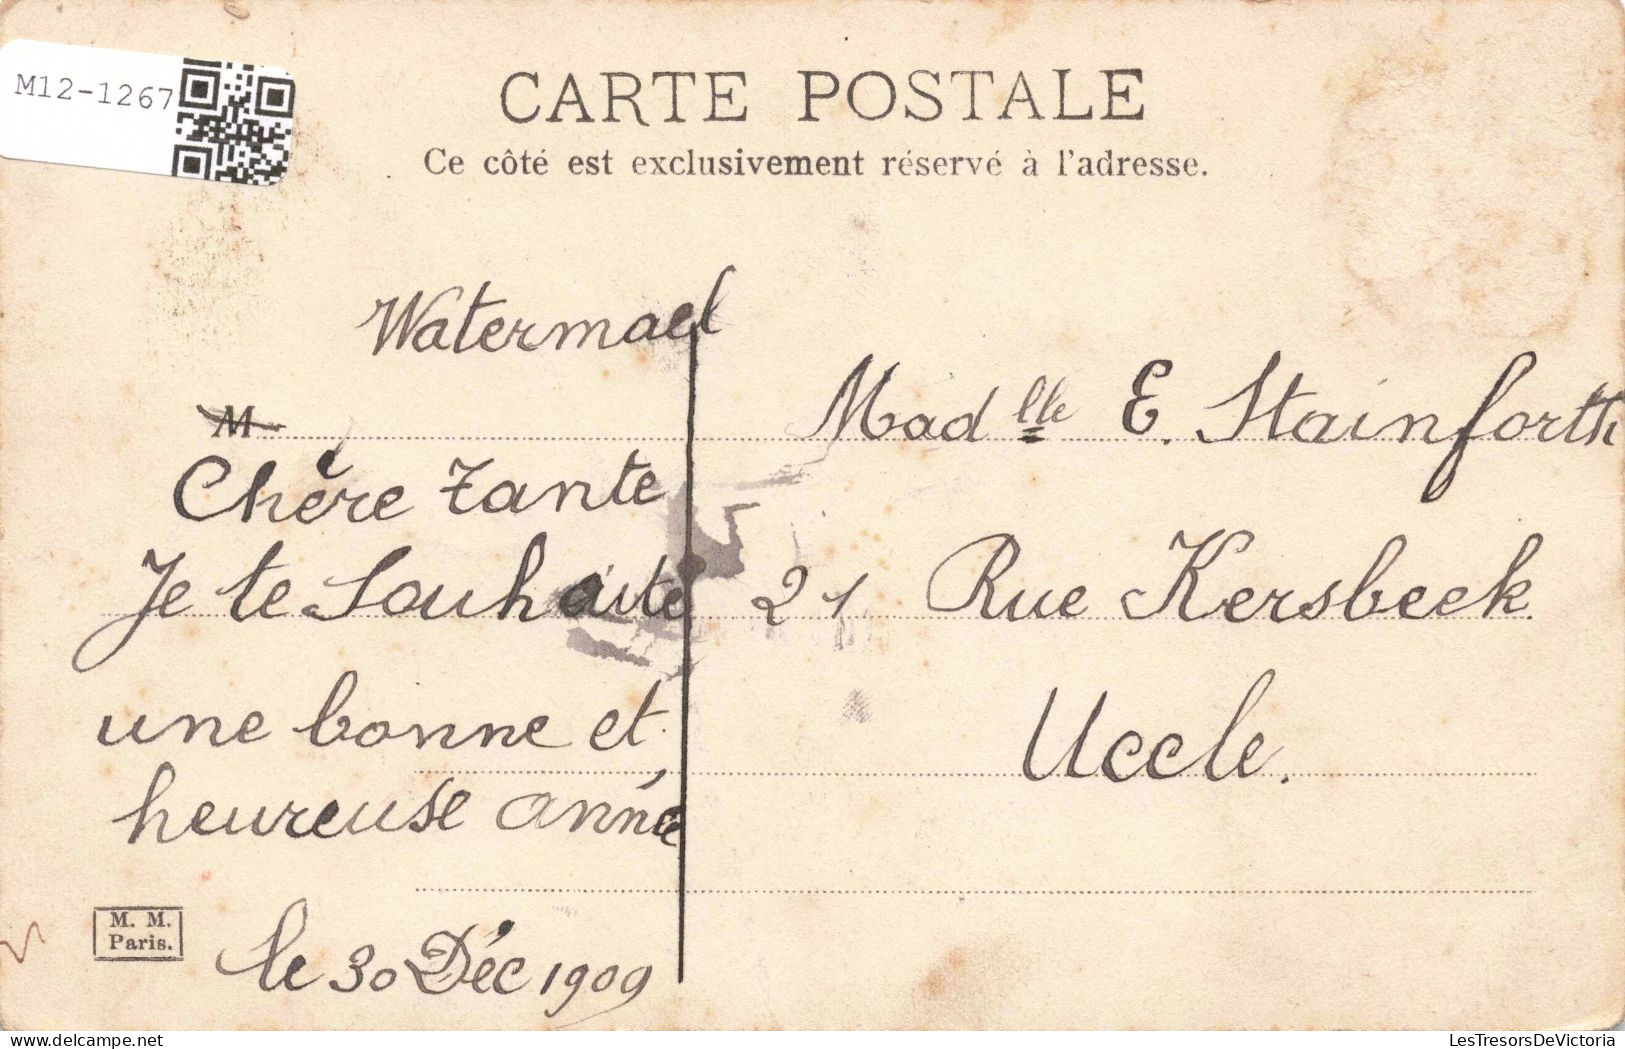 M12-1267
CARTE POSTALE
Ce côté est exclusivement réservé à l'adresse.
Watermael
M
Chère tante
Je te Souhaite
une bonne et
heureuse année
le 30 Déc 1909
Mad lle E. Stainforth
21 Rue Kersbeek
Uccle.
M. M.
Paris.
LesTresorsDeVictoria